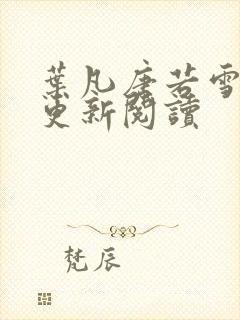 葉凡唐若雪
更新閱讀
梵辰